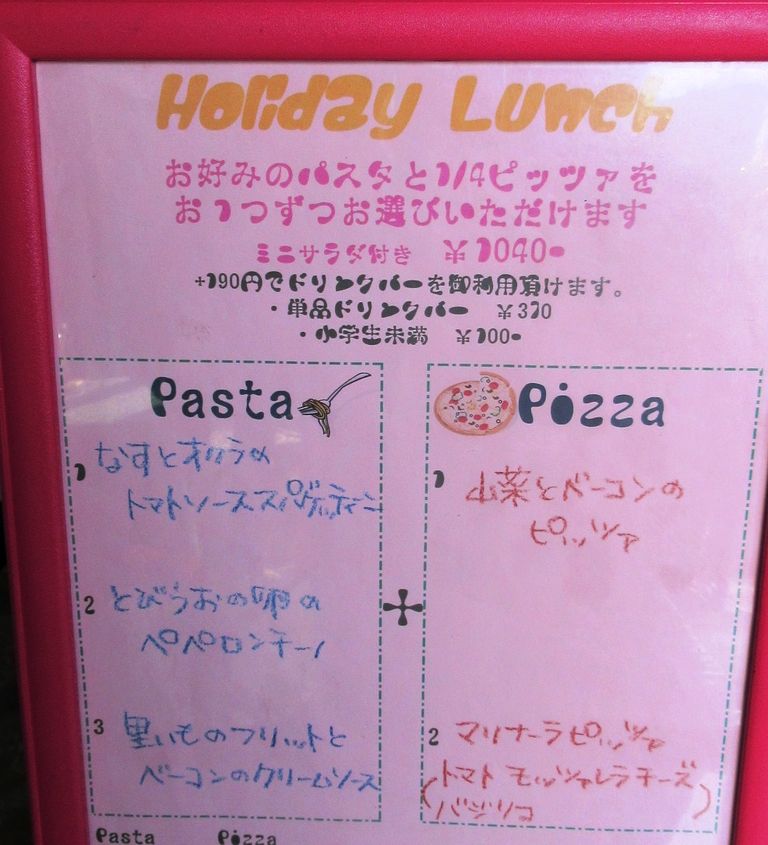 Holiday Lunch
お好みのパスタと1/4ピッツァを
お1つずつお選びいただけます
ミニサラダ付き ¥1040-
+190円でドリンクバーを御利用頂けます。
・単品ドリンクバー ¥310
・小学生未満 ¥100-
Pasta
1 なすとオクラの
トマトソーススパゲッティーニ
2 とびうおの卵の
ペペロンチーノ
3 里いものフリットと
ベーコンのクリームソース
+
Pizza
1 山菜とベーコンの
ピッツァ
2 マリナーラピッツァ
(トマト モッツァレラチーズ
バジリコ)
Pasta Pizza